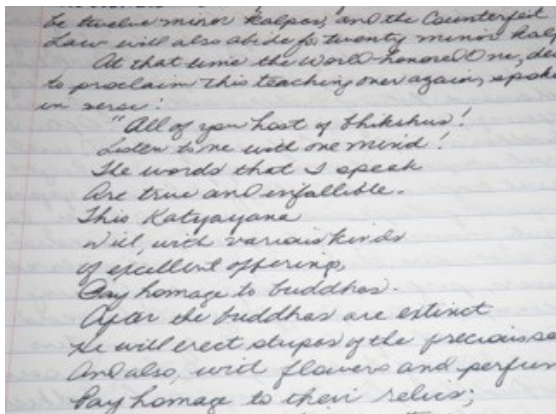 be twelve minor kalpas, and the Counterfeit
Law will also abide for twenty minor kalp
At that time the World-honored One, de
to proclaim this teaching over again, spoke
in verse:
"All of you host of bhikshus!
Listen to me with one mind!
The words that I speak
Are true and infallible.
This Katyayana
Will, with various kinds
of excellent offering,
Pay homage to buddhas.
After the buddhas are extinct
He will erect stupas of the precious s
And also, with flowers and perfum
Pay homage to their relics;